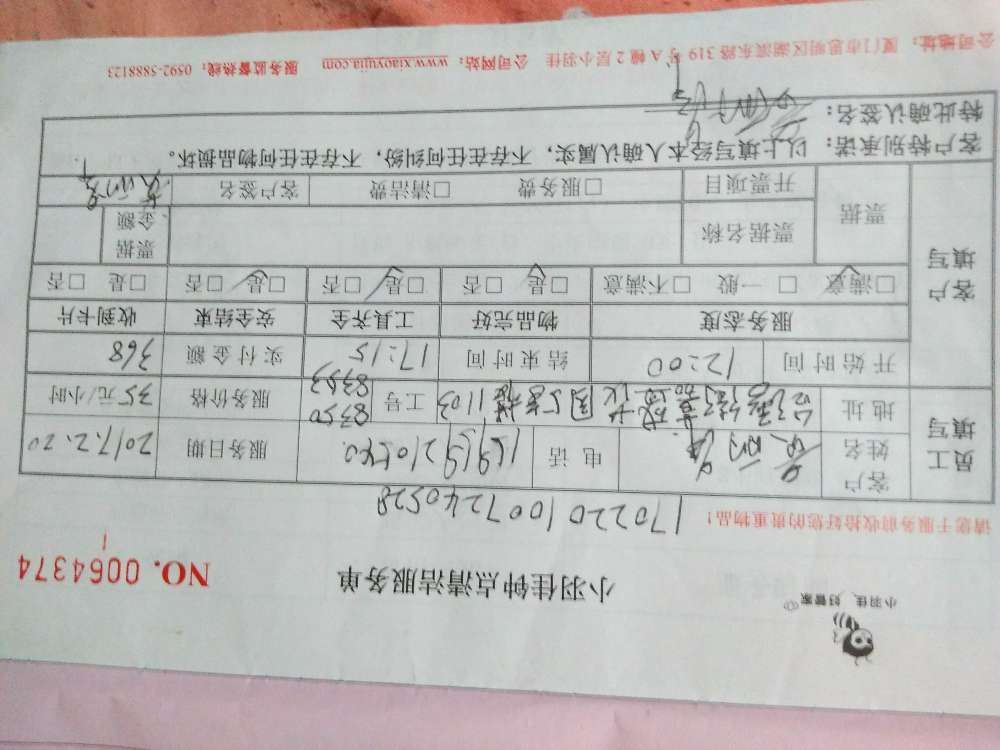 小羽佳，好管家
小羽佳钟点清洁服务单
NO. 0064374
请您于服务前收拾好您的贵重物品！
1702201007240528
员工填写
客户姓名
电话
服务日期 2017.2.20
地址
1103
工号 8350 8363
服务价格 35元/小时
开始时间 12:00
结束时间 17:15
实付金额 368
客户填写
服务态度 物品完好 工具齐全 安全结束 收到卡片
□满意 □一般 □不满意 □是 □否 □是 □否 □是 □否 □是 □否
票据
票据名称
票据金额
开票项目 □服务费 □清洁费 客户签名
客户特别承诺：以上填写经本人确认属实，不存在任何纠纷，不存在任何物品损坏。
特此确认签名：
公司地址：厦门市思明区湖滨东路319号A幢2层小羽佳 公司网站：www.xiaoyujia.com 服务监督热线：0592-5888123